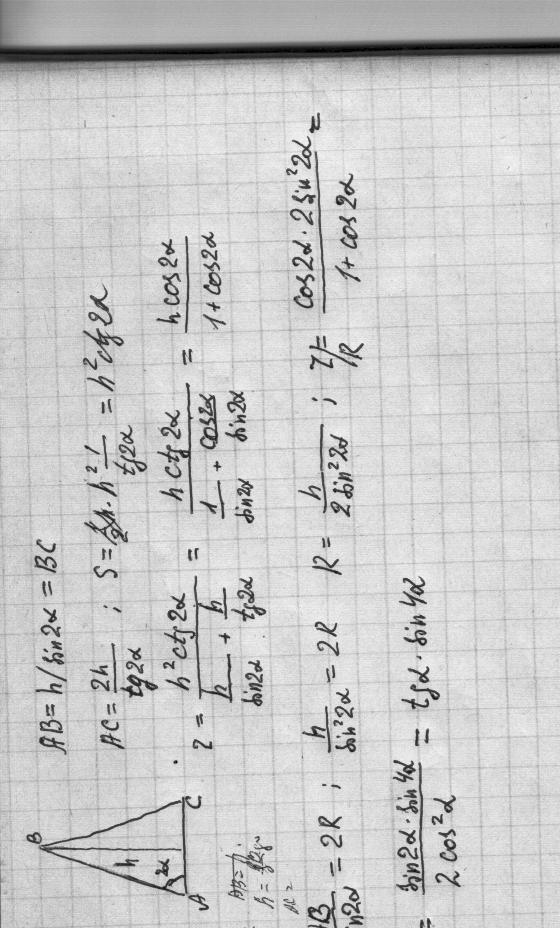 B
h
2α
A
C
AB = h/sin2α = BC
AC = 2h/tg2α ; S = h · h 1/tg2α = h² ctg2α
r = (h² ctg2α)/(h/sin2α + h/tg2α) = (h ctg2α)/(1/sin2α + cos2α/sin2α) = (h cos2α)/(1 + cos2α)
AB/sin2α = 2R ; h/sin²2α = 2R R = h/(2 sin²2α) ; r/R = (cos2α · 2 sin²2α)/(1 + cos2α) =
= (sin2α · sin4α)/(2 cos²α) = tgα · sin4α